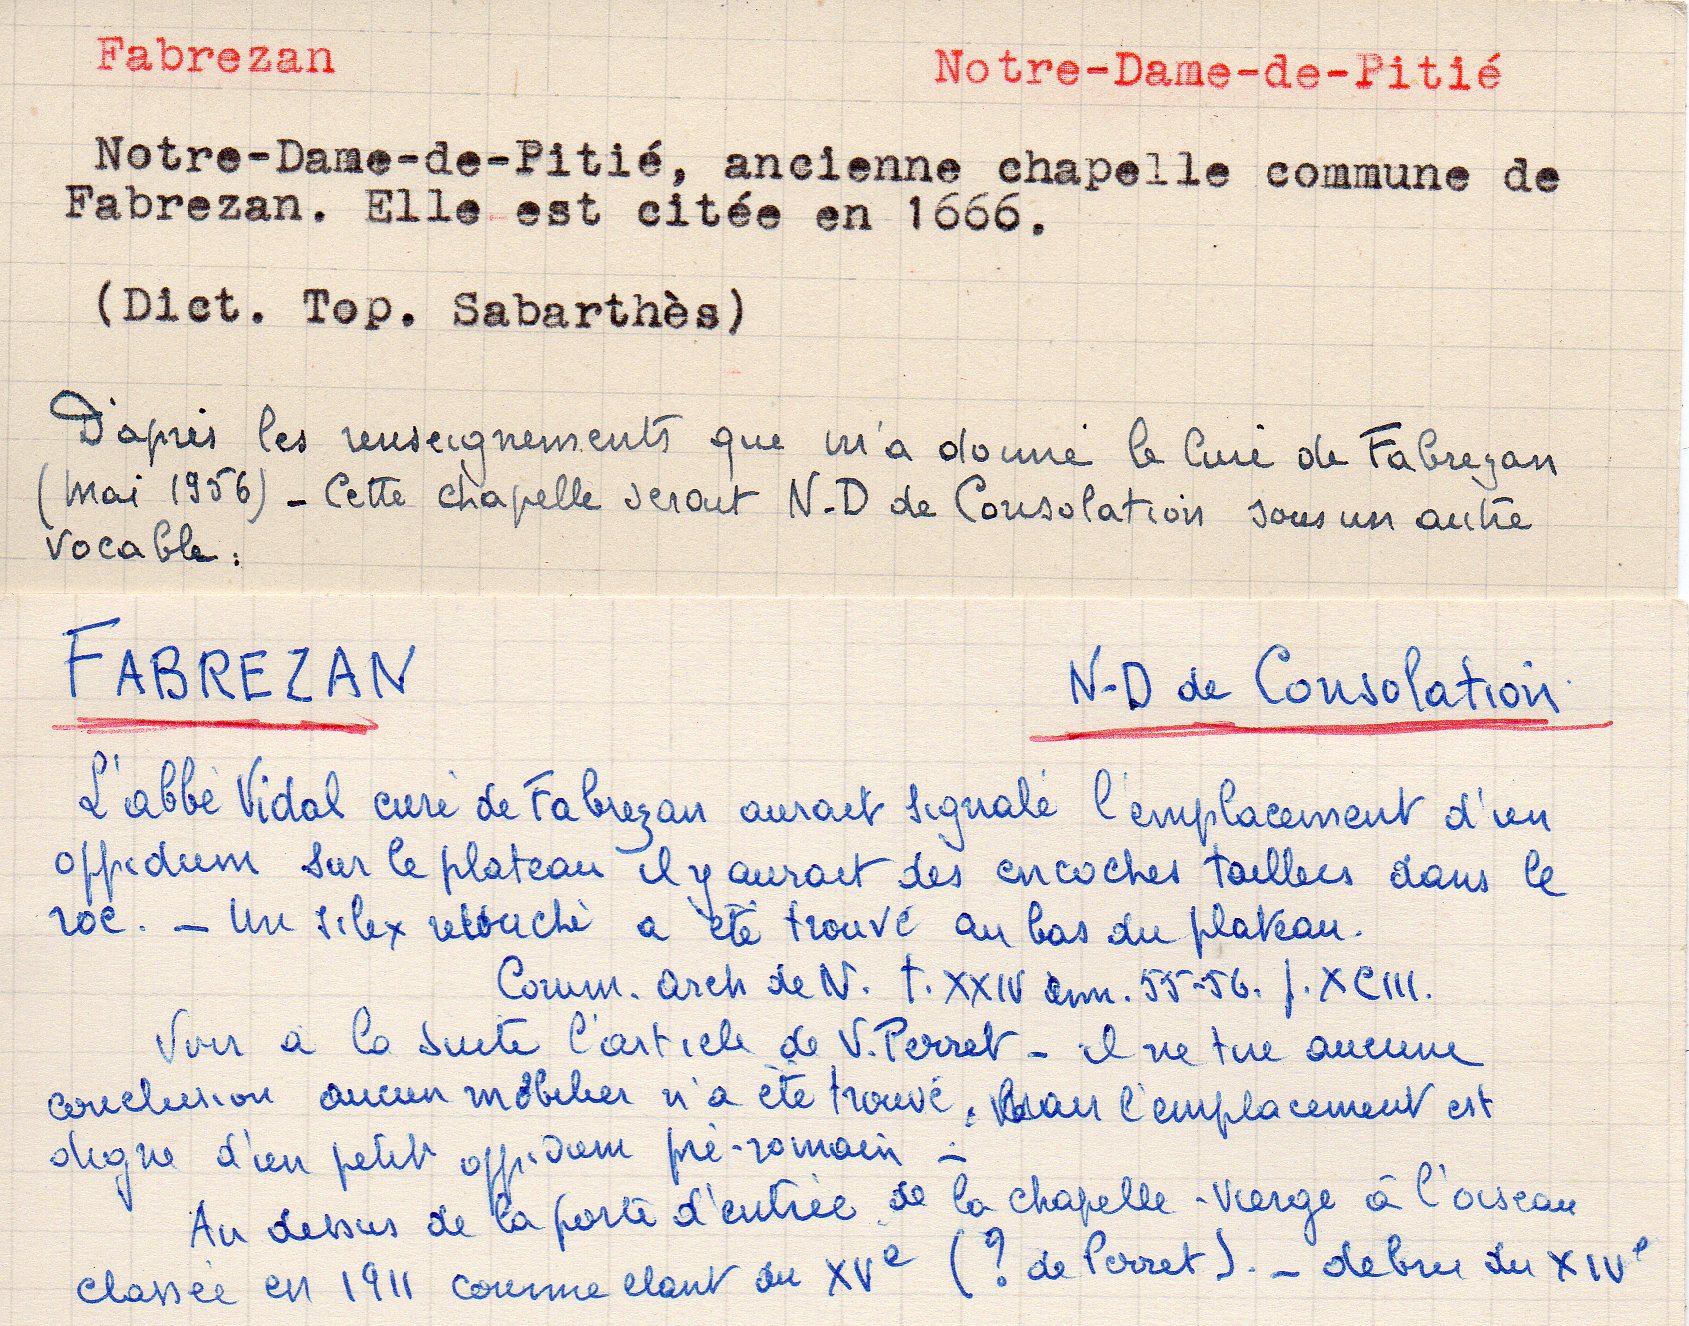 Fabrezan Notre-Dame-de-Pitié
Notre-Dame-de-Pitié, ancienne chapelle commune de
Fabrezan. Elle est citée en 1666.
(Dict. Top. Sabarthès)
D'après les renseignements que m'a donné le Curé de Fabrezan
(Mai 1956) - Cette chapelle serait N-D de Consolation sous un autre
vocable.
FABREZAN N-D de Consolation
L'abbé Vidal curé de Fabrezan aurait signalé l'emplacement d'un
oppidum sur le plateau il y aurait des encoches taillées dans le
roc. - Un silex retouché a été trouvé au bas du plateau.
Comm. arch de N. t. XXIV ann. 55-56. p. XCIII.
Voir à la suite l'article de V. Perret - il ne tire aucune
conclusion aucun mobilier n'a été trouvé. l'emplacement est
digne d'un petit oppidum pré-romain -
Au dessus de la porte d'entrée de la chapelle - Vierge à l'oiseau
classée en 1911 comme étant du XVe (? de Perret). - début du XIVe